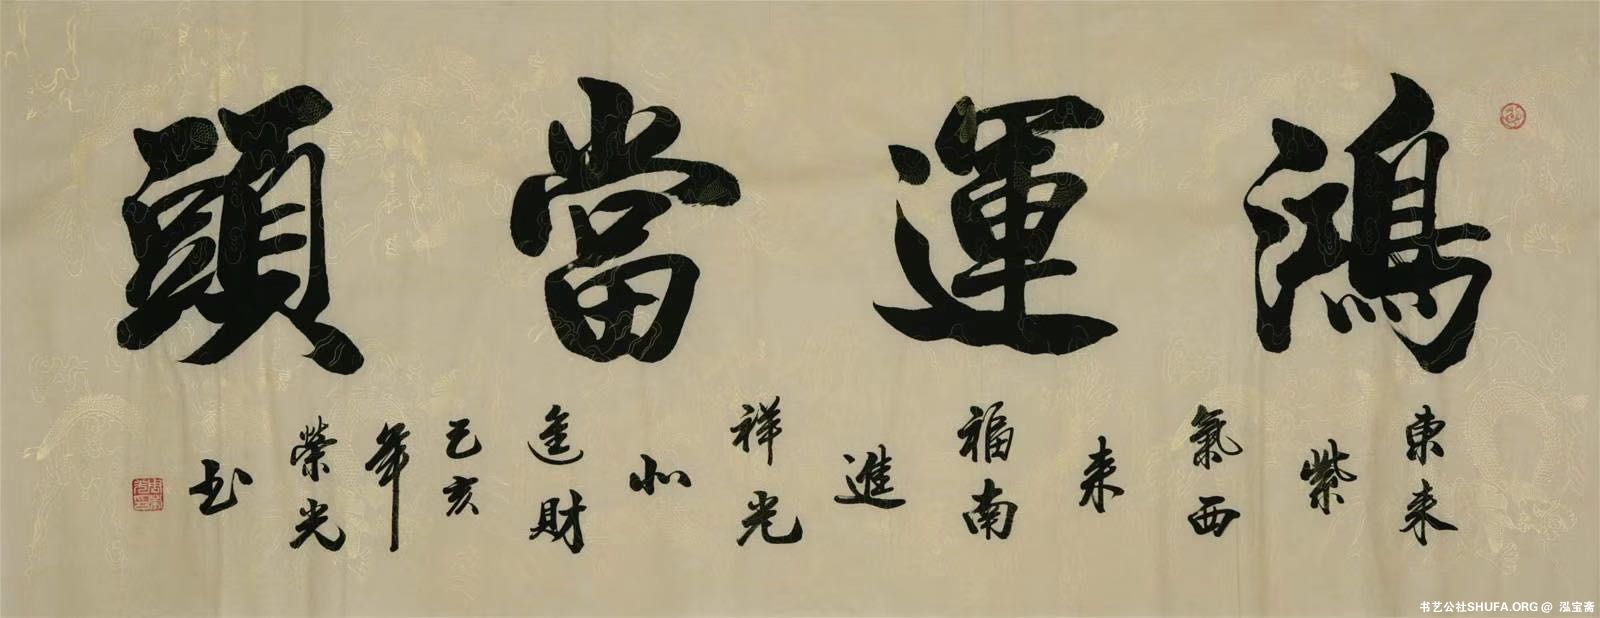 鴻運當頭
東来
紫
氣西
来
福南
進
祥光
北
進財
己亥
年
榮光
书
书艺公社SHUFA.ORG @ 泓宝斋